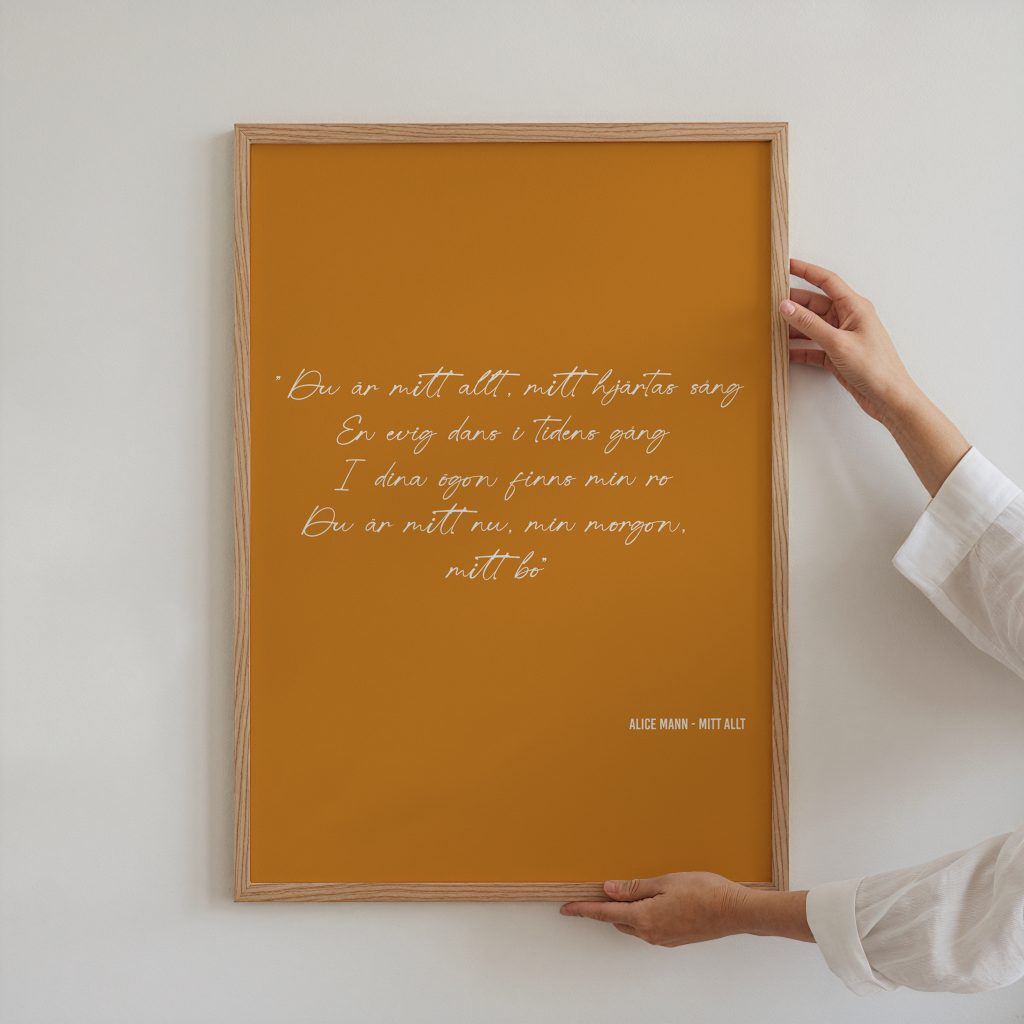 "Du är mitt allt, mitt hjärtas sång
En evig dans i tidens gång
I dina ögon finns min ro
Du är mitt nu, min morgon,
mitt bo"
ALICE MANN - MITT ALLT